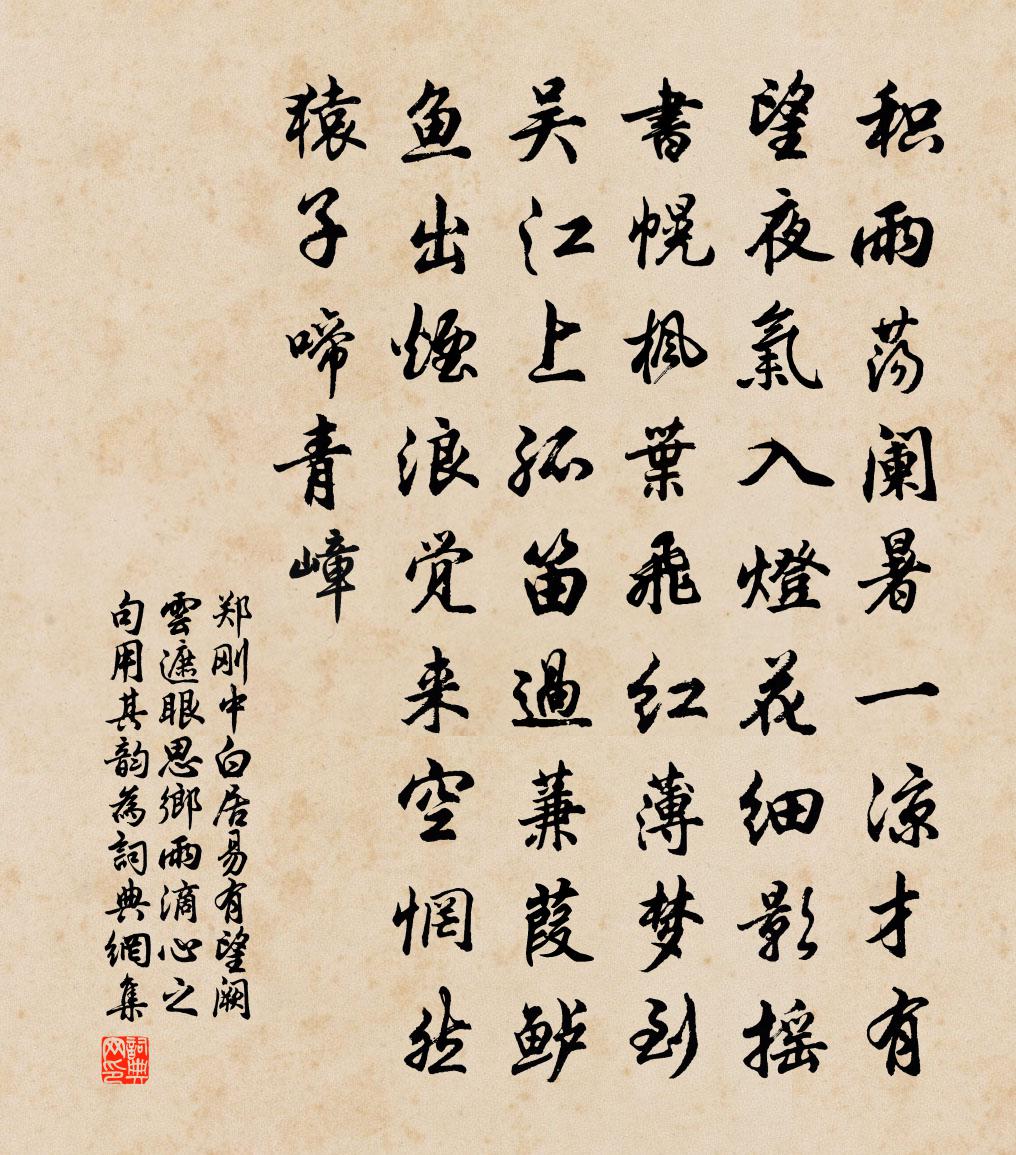 积雨荡阑暑一凉才有
望夜氣入燈花细影摇
書幌枫葉飛红薄梦到
吴江上孤笛過蒹葭鲈
鱼出煙浪觉来空惘然
猿子啼青嶂
郑刚中白居易有望阙
雲遮眼思鄉雨滴心之
句用其韵為詞典網集
詞典
网印